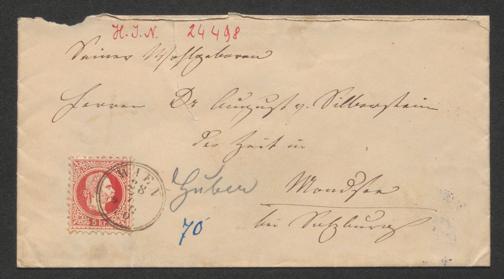 H. I. N. 24498
Seiner Wohlgeboren
Herrn Dr August v. Silberstein
der Zeit in
Mondsee
bei Salzburg
WIEN
28
Huber
70